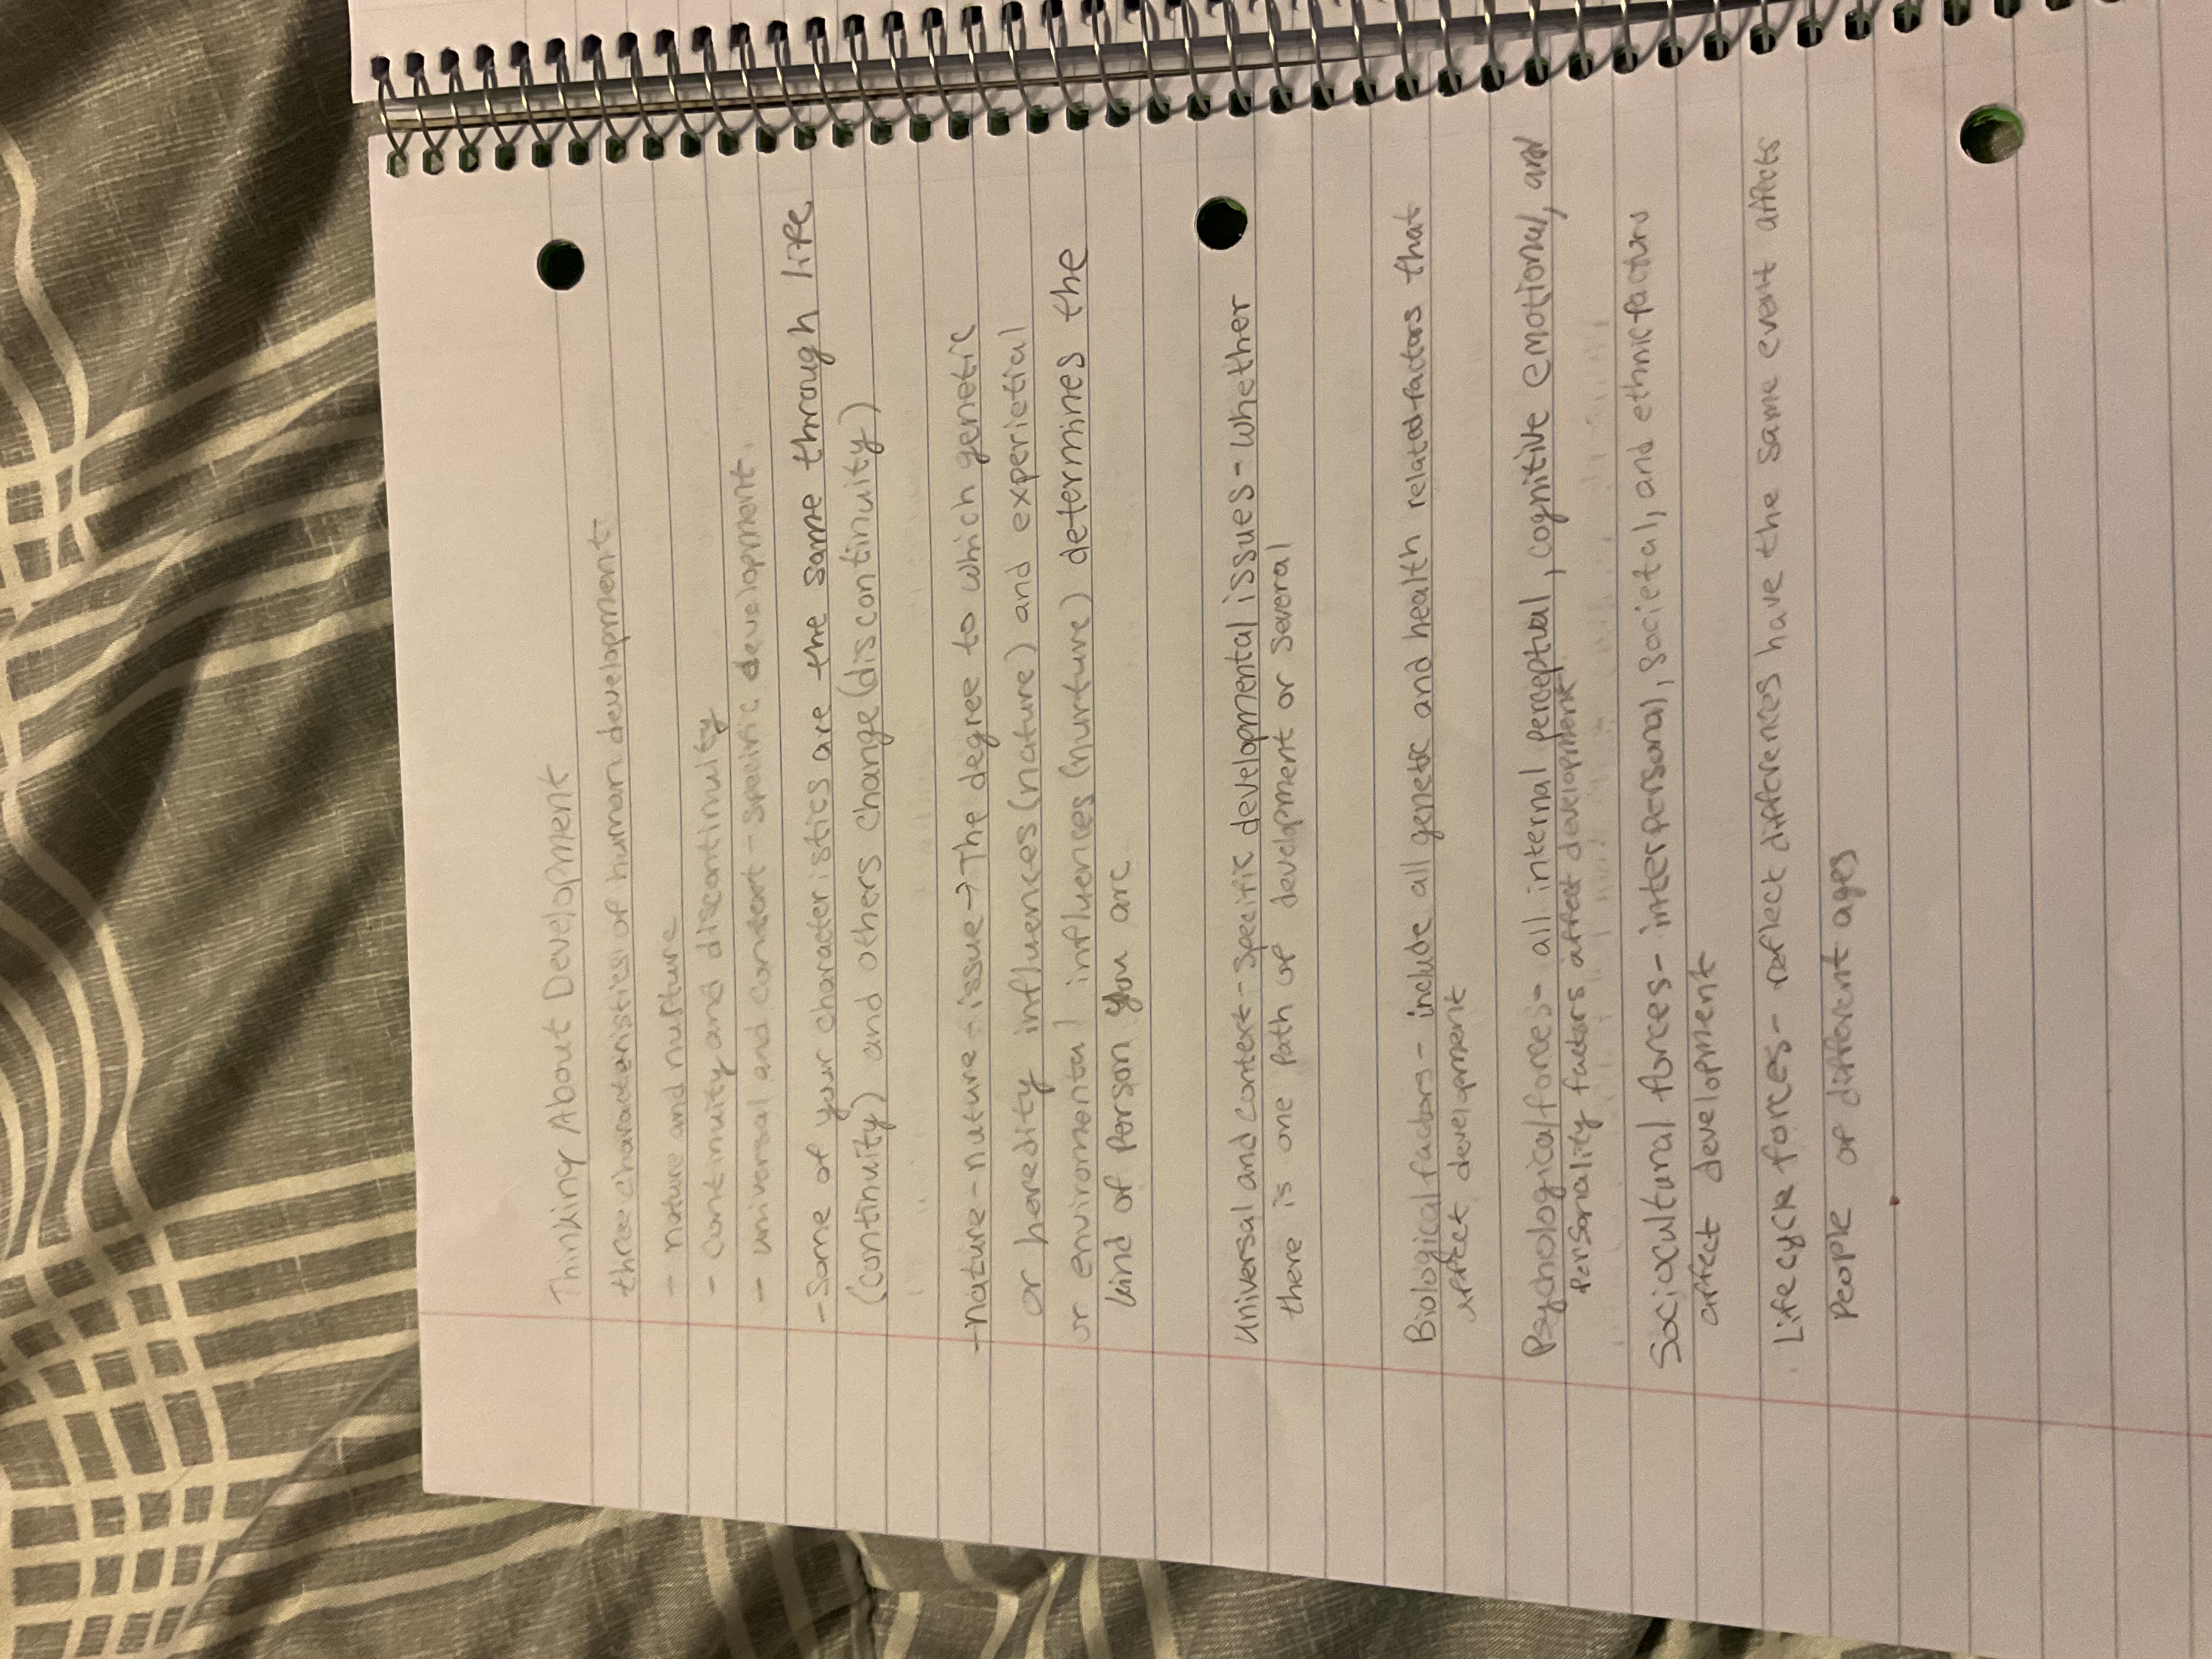 Thinking About Development
three characteristics of human development
- nature and nurture
- continuity and discontinuity
- universal and context - specific development.
- Some of your characteristics are the same through life
(continuity) and others change (discontinuity)
- nature - nuture - issue → The degree to which genetic
or heredity influences (nature) and experietial
or enviromental influences (nurture) determines the
kind of person you are
Universal and context - specific developmental issues - whether
there is one path of development or several
Biological factors - include all genetic and health related factors that
affect development
Psychological forces - all internal perceptual, cognitive emotional, and
personality factors affect development
Sociocultural forces - interpersonal, societal, and ethnic factors
affect development
Life cycle forces - reflect differences have the same event affects
people of different ages